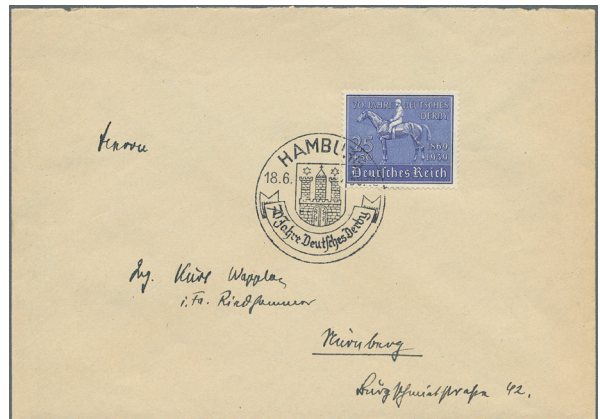 70 JAHRE DEUTSCHES
DERBY
25
+50
1869
1939
Deutsches Reich
HAMBU
18.6.
70 Jahre Deutsches Derby
Herrn
Ing. Kurt
i. Fa. Riedhammer
Nürnberg
Burgschmietstraße 42.